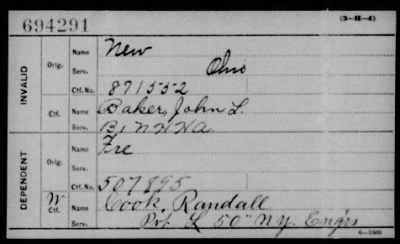 694291
(3—H—4)
INVALID
Orig.
Name
New
Serv.
Ohio
Ctf. No.
871552
Ctf.
Name
Baker, John L.
Serv.
DEPENDENT
Orig.
Name
Serv.
Ctf. No.
507895
W
Ctf.
Name
Cook, Randall
Pvt L 50" N.Y. Engrs